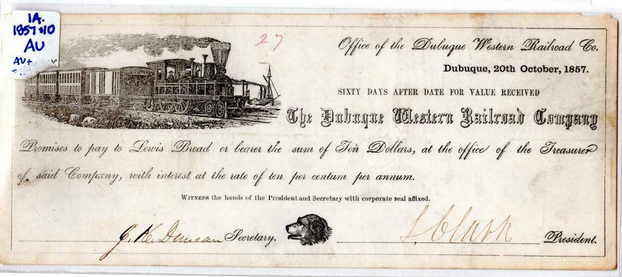 IA.
1857 $10
AU
AU+
27
Office of the Dubuque Western Railroad Co.
Dubuque, 20th October, 1857.
SIXTY DAYS AFTER DATE FOR VALUE RECEIVED
The Dubuque Western Railroad Company
Promises to pay to Lewis Broad or bearer the sum of Ten Dollars, at the office of the Treasurer
of said Company, with interest at the rate of ten per centum per annum.
WITNESS the hands of the President and Secretary with corporate seal affixed.
J. K. Duncan Secretary. S. Clark President.